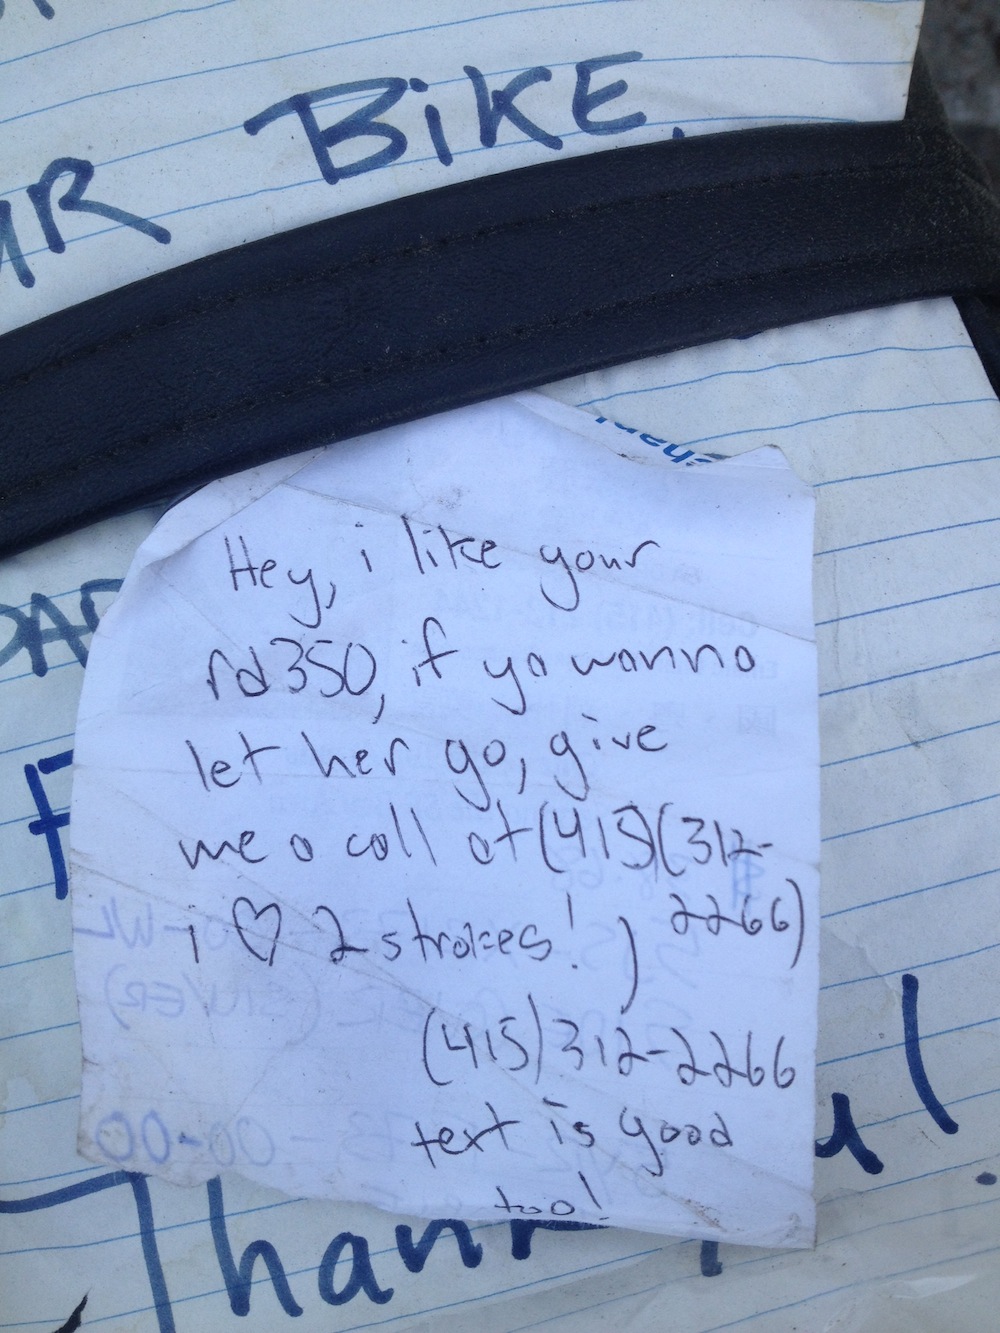 UR BiKE.
Hey, i like your
rd350, if ya wanna
let her go, give
me a call at (415)(312-
2266)
i ♡ 2 strokes!
(415)312-2266
text is good
too!
Thank u!